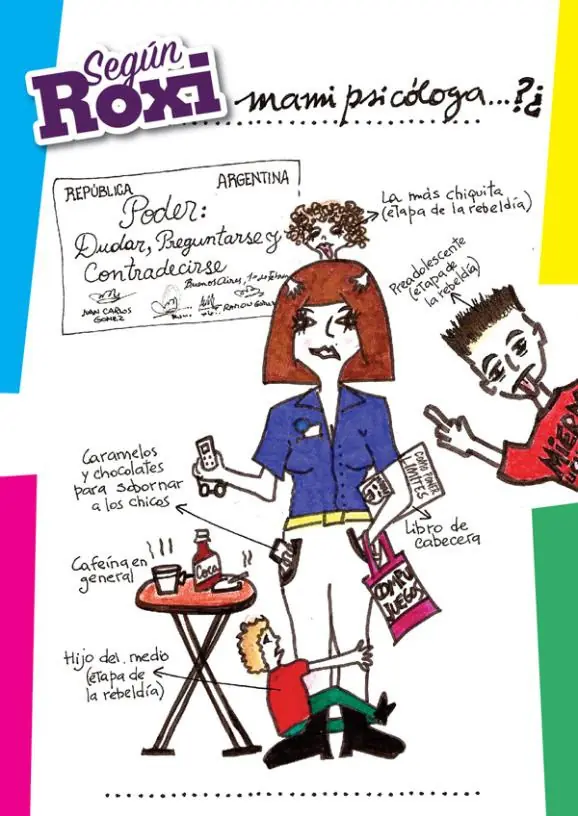 Según
Roxi
mami psicóloga...?¿
REPÚBLICA ARGENTINA
Poder:
Dudar, Preguntarse y
Contradecirse
Buenos Aires,
JUAN CARLOS
GOMEZ
RAMON GOMEZ
La más chiquita
(etapa de la rebeldía)
Preadolescente
(etapa de
la rebeldía)
MIERD
Caramelos
y chocolates
para sobornar
a los chicos
COMO PONER
LIMITES
Libro de
cabecera
Cafeína en
general
Coca
COMPU
JUEGOS
Hijo del medio
(etapa de
la rebeldía)